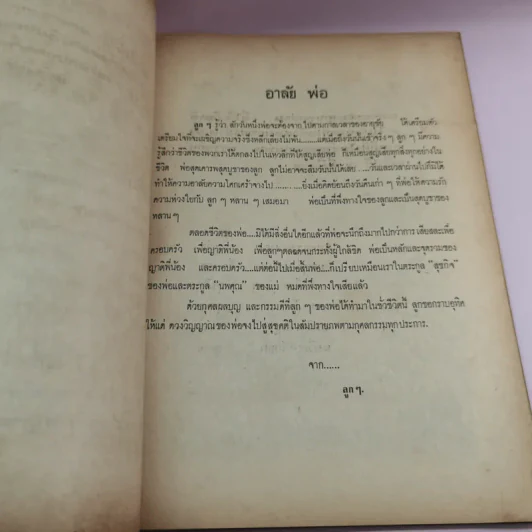 อาลัย พ่อ
ลูก ๆ รู้ว่า สักวันหนึ่งพ่อจะต้องจากไปตามกาลเวลาของอายุขัย ได้เตรียมตัว
เตรียมใจที่จะเผชิญความจริงซึ่งหลีกเลี่ยงไม่พ้น.......แต่เมื่อถึงวันนั้นเข้าจริง ๆ ลูก ๆ มีความ
รู้สึกว่าชีวิตของพวกเราได้ตกลงไปในเหวลึกที่ได้สูญเสียพ่อ ก็เหมือนสูญเสียทุกสิ่งทุกอย่างใน
ชีวิต พ่อสุดเคารพสุดบูชาของลูก ลูกไม่อาจจะลืมวันนั้นได้เลย ....วันและเวลาผ่านไปก็มิได้
ทำให้ความอาลัยความโศกเศร้าจางไป ..........ยิ่งเมื่อคิดย้อนถึงวันคืนเก่า ๆ ที่พ่อให้ความรัก
ความห่วงใยกับ ลูก ๆ หลาน ๆ เสมอมา พ่อเป็นที่พึ่งทางใจของลูกและเป็นสุดบูชาของ
หลาน ๆ
ตลอดชีวิตของพ่อ....มิได้มีสิ่งอื่นใดอีกแล้วที่พ่อจะนึกถึงมากไปกว่าการเสียสละเพื่อ
ครอบครัว เพื่อญาติพี่น้อง เพื่อลูกๆตลอดจนกระทั่งผู้ใกล้ชิด พ่อเป็นหลักและจุดรวมของ
ญาติพี่น้อง และครอบครัว....แต่ต่อนี้ไปเมื่อสิ้นพ่อ....ก็เปรียบเหมือนเราในตระกูล "สุขกิจ"
ของพ่อและตระกูล "นพคุณ" ของแม่ หมดที่พึ่งทางใจเสียแล้ว
ด้วยกุศลผลบุญ และกรรมดีที่ลูก ๆ ของพ่อได้ทำมาในชั่วชีวิตนี้ ลูกขอกราบอุทิศ
ให้แด่ ดวงวิญญาณของพ่อจงไปสู่สุขคติในสัมปรายภพตามกุศลกรรมทุกประการ.
จาก......
ลูก ๆ.